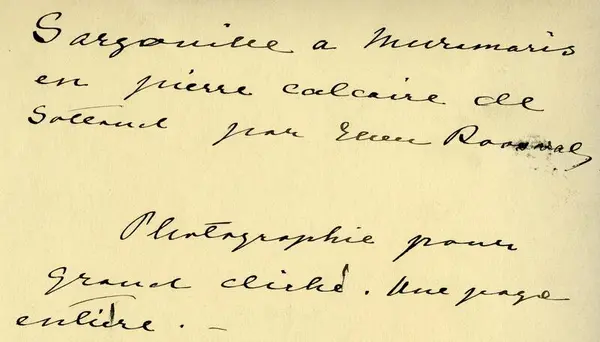 Gargouille a Muramaris
en pierre calcaire de
Gotland par Ellen Roosval
Photographie pour
grand cliché. Une page
entière. –